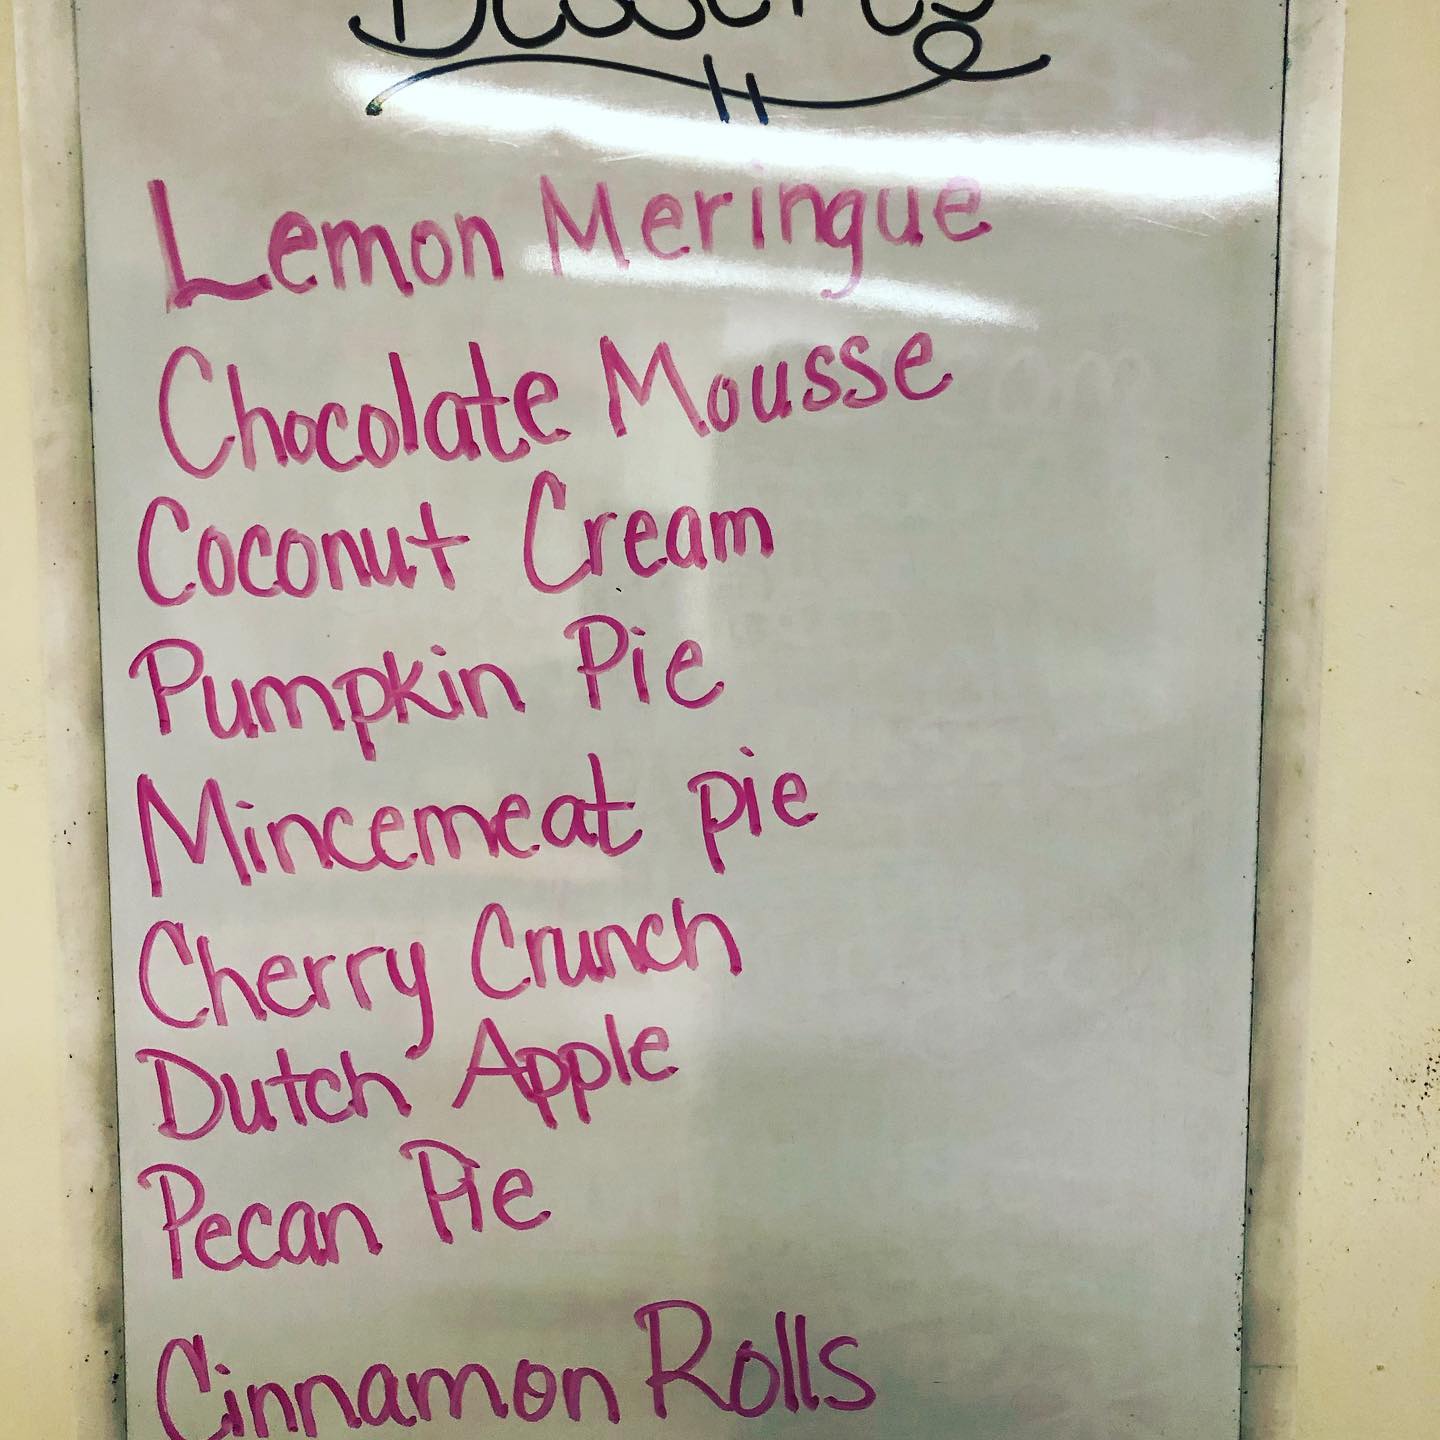 Desserts
Lemon Meringue
Chocolate Mousse
Coconut Cream
Pumpkin Pie
Mincemeat pie
Cherry Crunch
Dutch Apple
Pecan Pie
Cinnamon Rolls